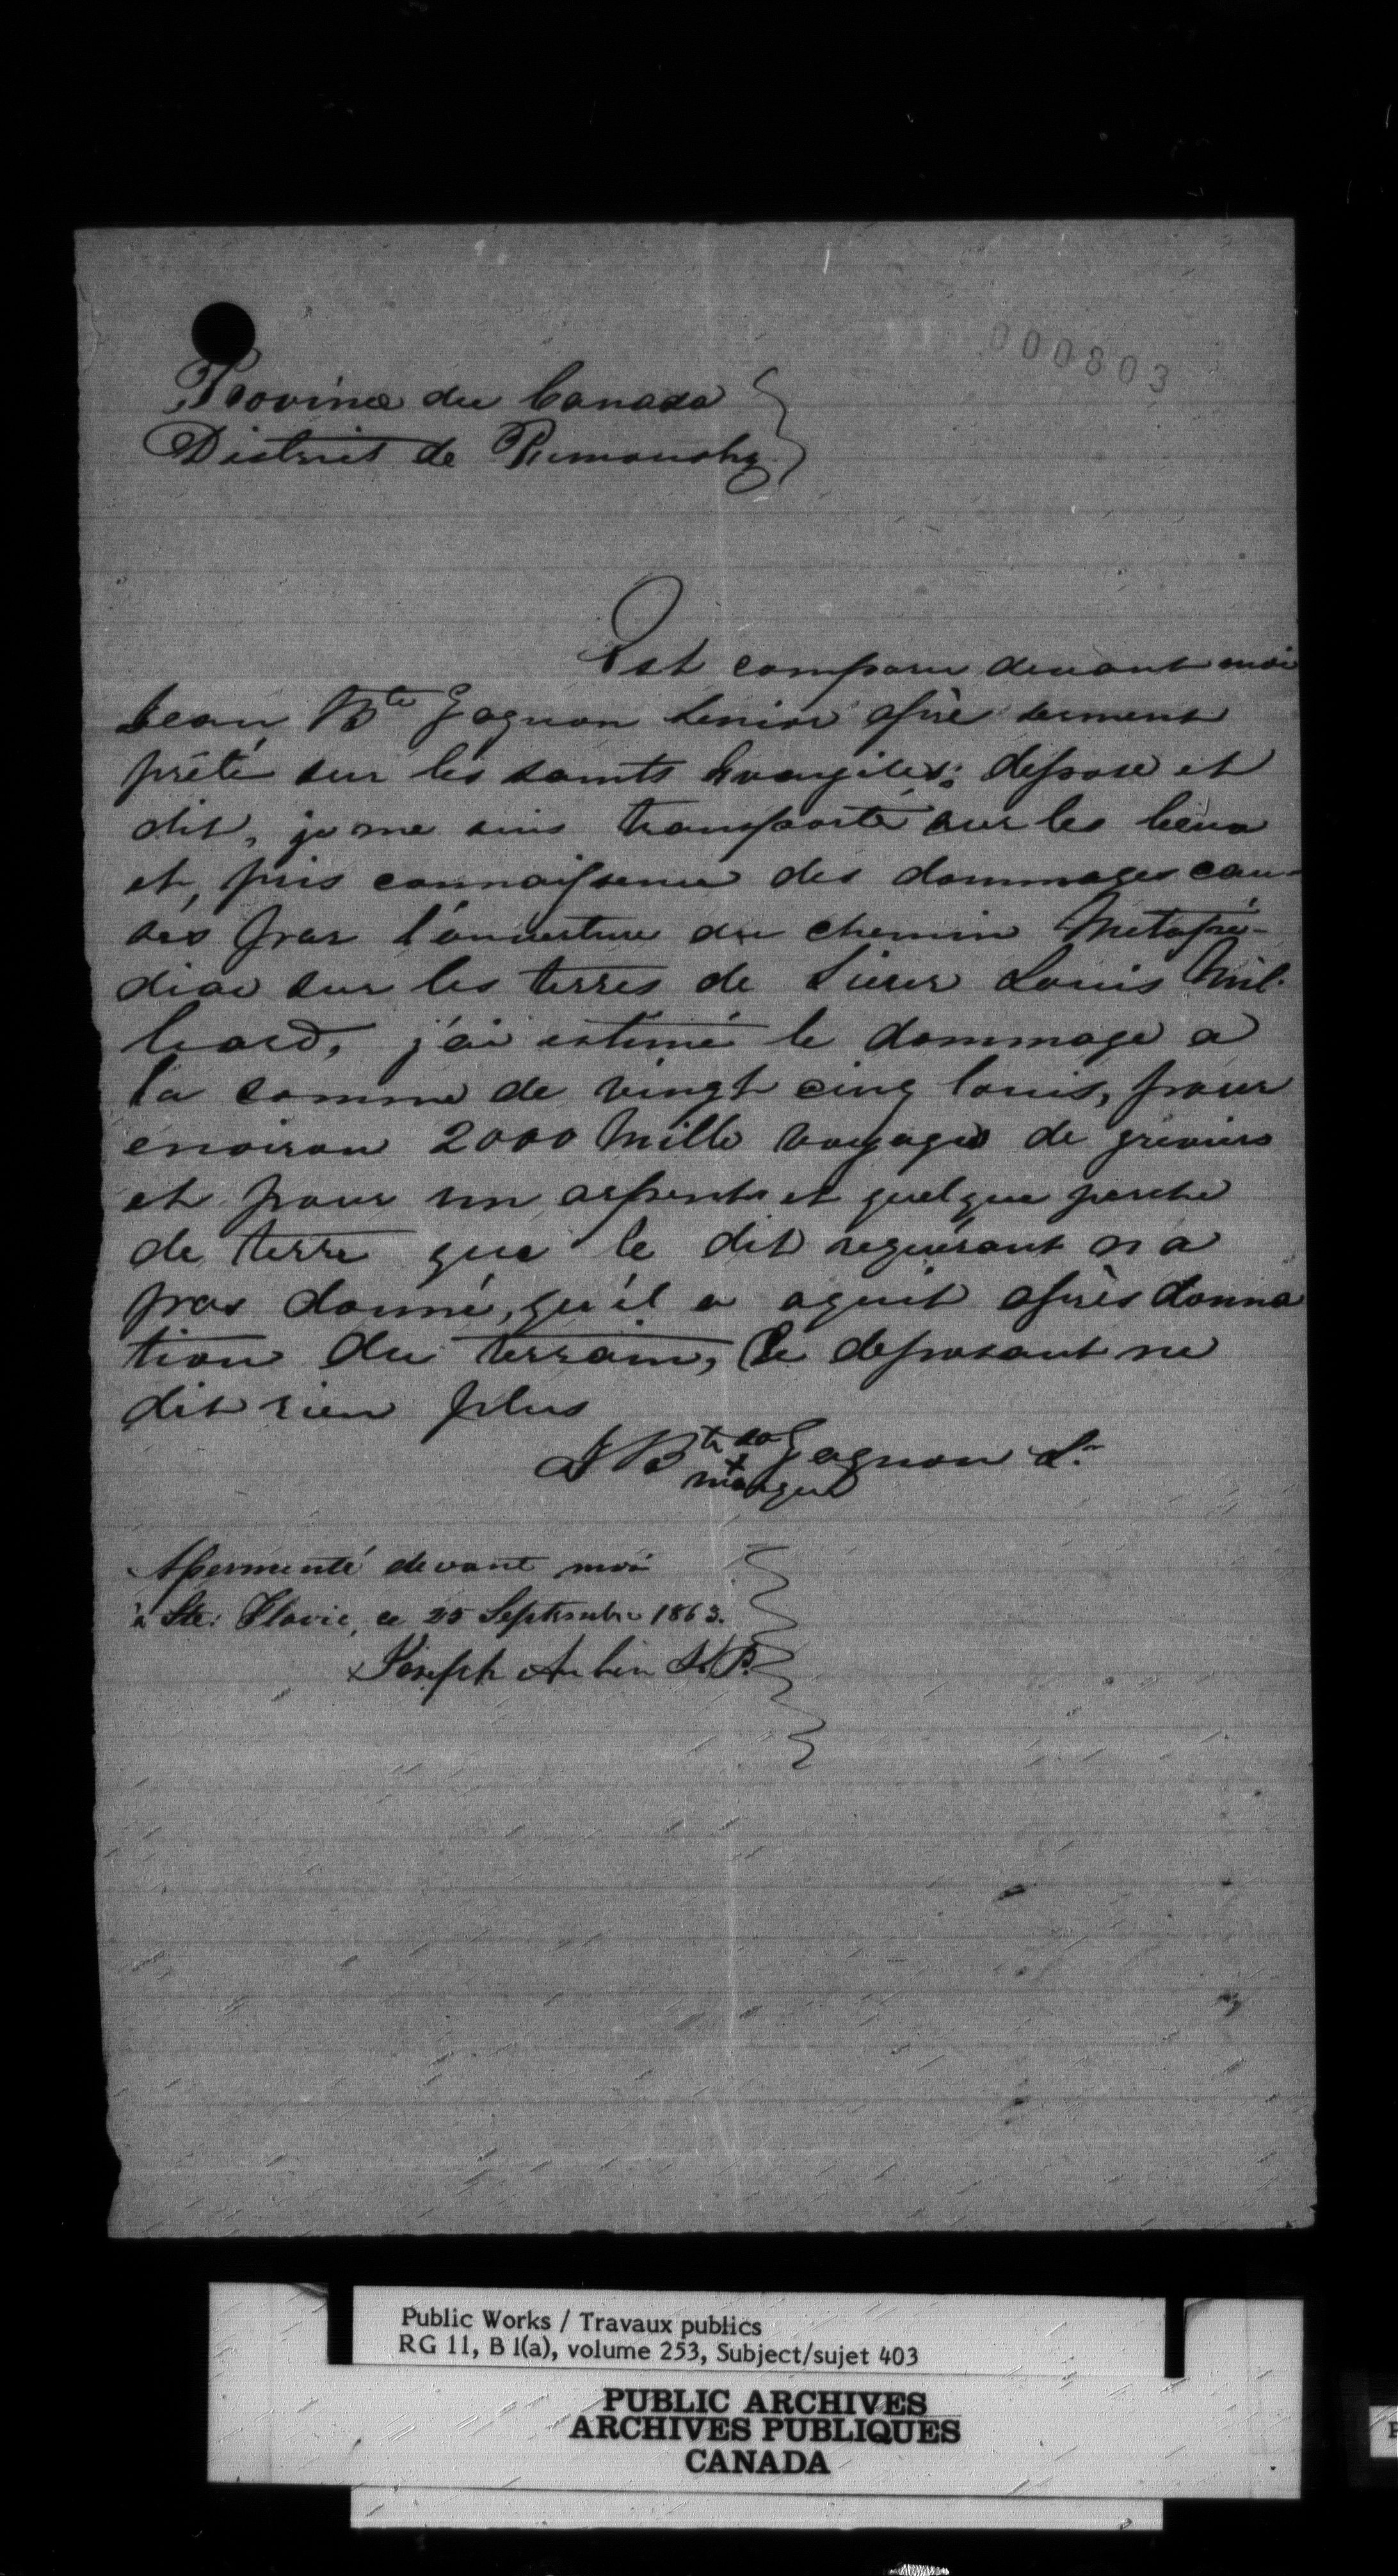 000803
Province du Canada
District de Rimousky
Est comparu devant moi
Jean Bte Gagnon senior aprè serment
prêté sur les saints Evangiles: depose et
dit, je me suis transporté sur les lieux
et, pris connaissence des dommages cau-
sés par l'ouverture du chemin Metapé-
diac sur les terres de Sieur Louis Mil-
liard, j'ai estimé le dommage a
la somme de vingt cinq louis, pour
environ 2000 Mille voyages de graviers
et pour un arpents et quelque perche
de terre que le dit requérant n a
pas donné, qu'il a aquit après donna
tion du terrain, Le deposant ne
dit rien plus
J Bte sa Gagnon Sr
+
marque
Assermenté devant moi
à Ste: Flavie, ce 25 Septembre 1863.
Joseph Aubin J.P.
Public Works / Travaux publics
RG 11, B 1(a), volume 253, Subject/sujet 403
PUBLIC ARCHIVES
ARCHIVES PUBLIQUES
CANADA